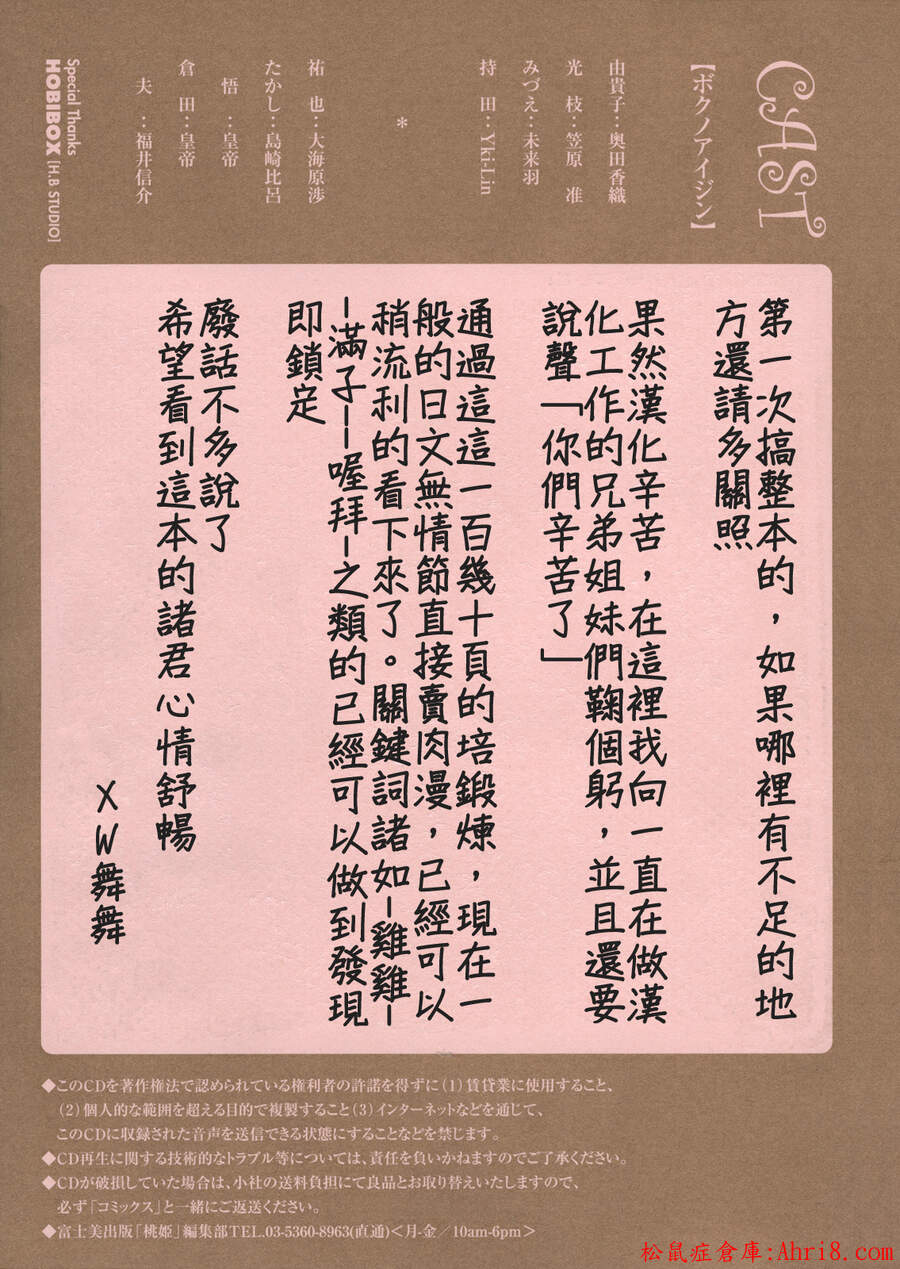 CAST
【ボクノアイジン】
由貴子‥奥田香織
光　枝‥笠原　准
みづえ‥未来羽
持　田‥Yki-Lin
＊
祐　也‥大海原渉
たかし‥島崎比呂
悟　‥皇帝
倉　田‥皇帝
夫　‥福井信介
Special Thanks
HOBIBOX [H.B STUDIO]
第一次搞整本的，如果哪裡有不足的地
方還請多關照
果然漢化辛苦，在這裡我向一直在做漢
化工作的兄弟姐妹們鞠個躬，並且還要
說聲「你們辛苦了」
通過這這一百幾十頁的培鍛煉，現在一
般的日文無情節直接賣肉漫，已經可以
稍流利的看下來了。關鍵詞諸如-雞雞-
-滿子--喔拜-之類的已經可以做到發現
即鎖定
廢話不多說了
希望看到這本的諸君心情舒暢
XW舞舞
◆このCDを著作権法で認められている権利者の許諾を得ずに（1）賃貸業に使用すること、
（2）個人的な範囲を超える目的で複製すること（3）インターネットなどを通じて、
このCDに収録された音声を送信できる状態にすることなどを禁じます。
◆CD再生に関する技術的なトラブル等については、責任を負いかねますのでご了承ください。
◆CDが破損していた場合は、小社の送料負担にて良品とお取り替えいたしますので、
必ず「コミックス」と一緒にご返送ください。
◆富士美出版「桃姫」編集部TEL.03-5360-8963(直通)＜月-金／10am-6pm＞
松鼠症倉庫:Ahri8.com